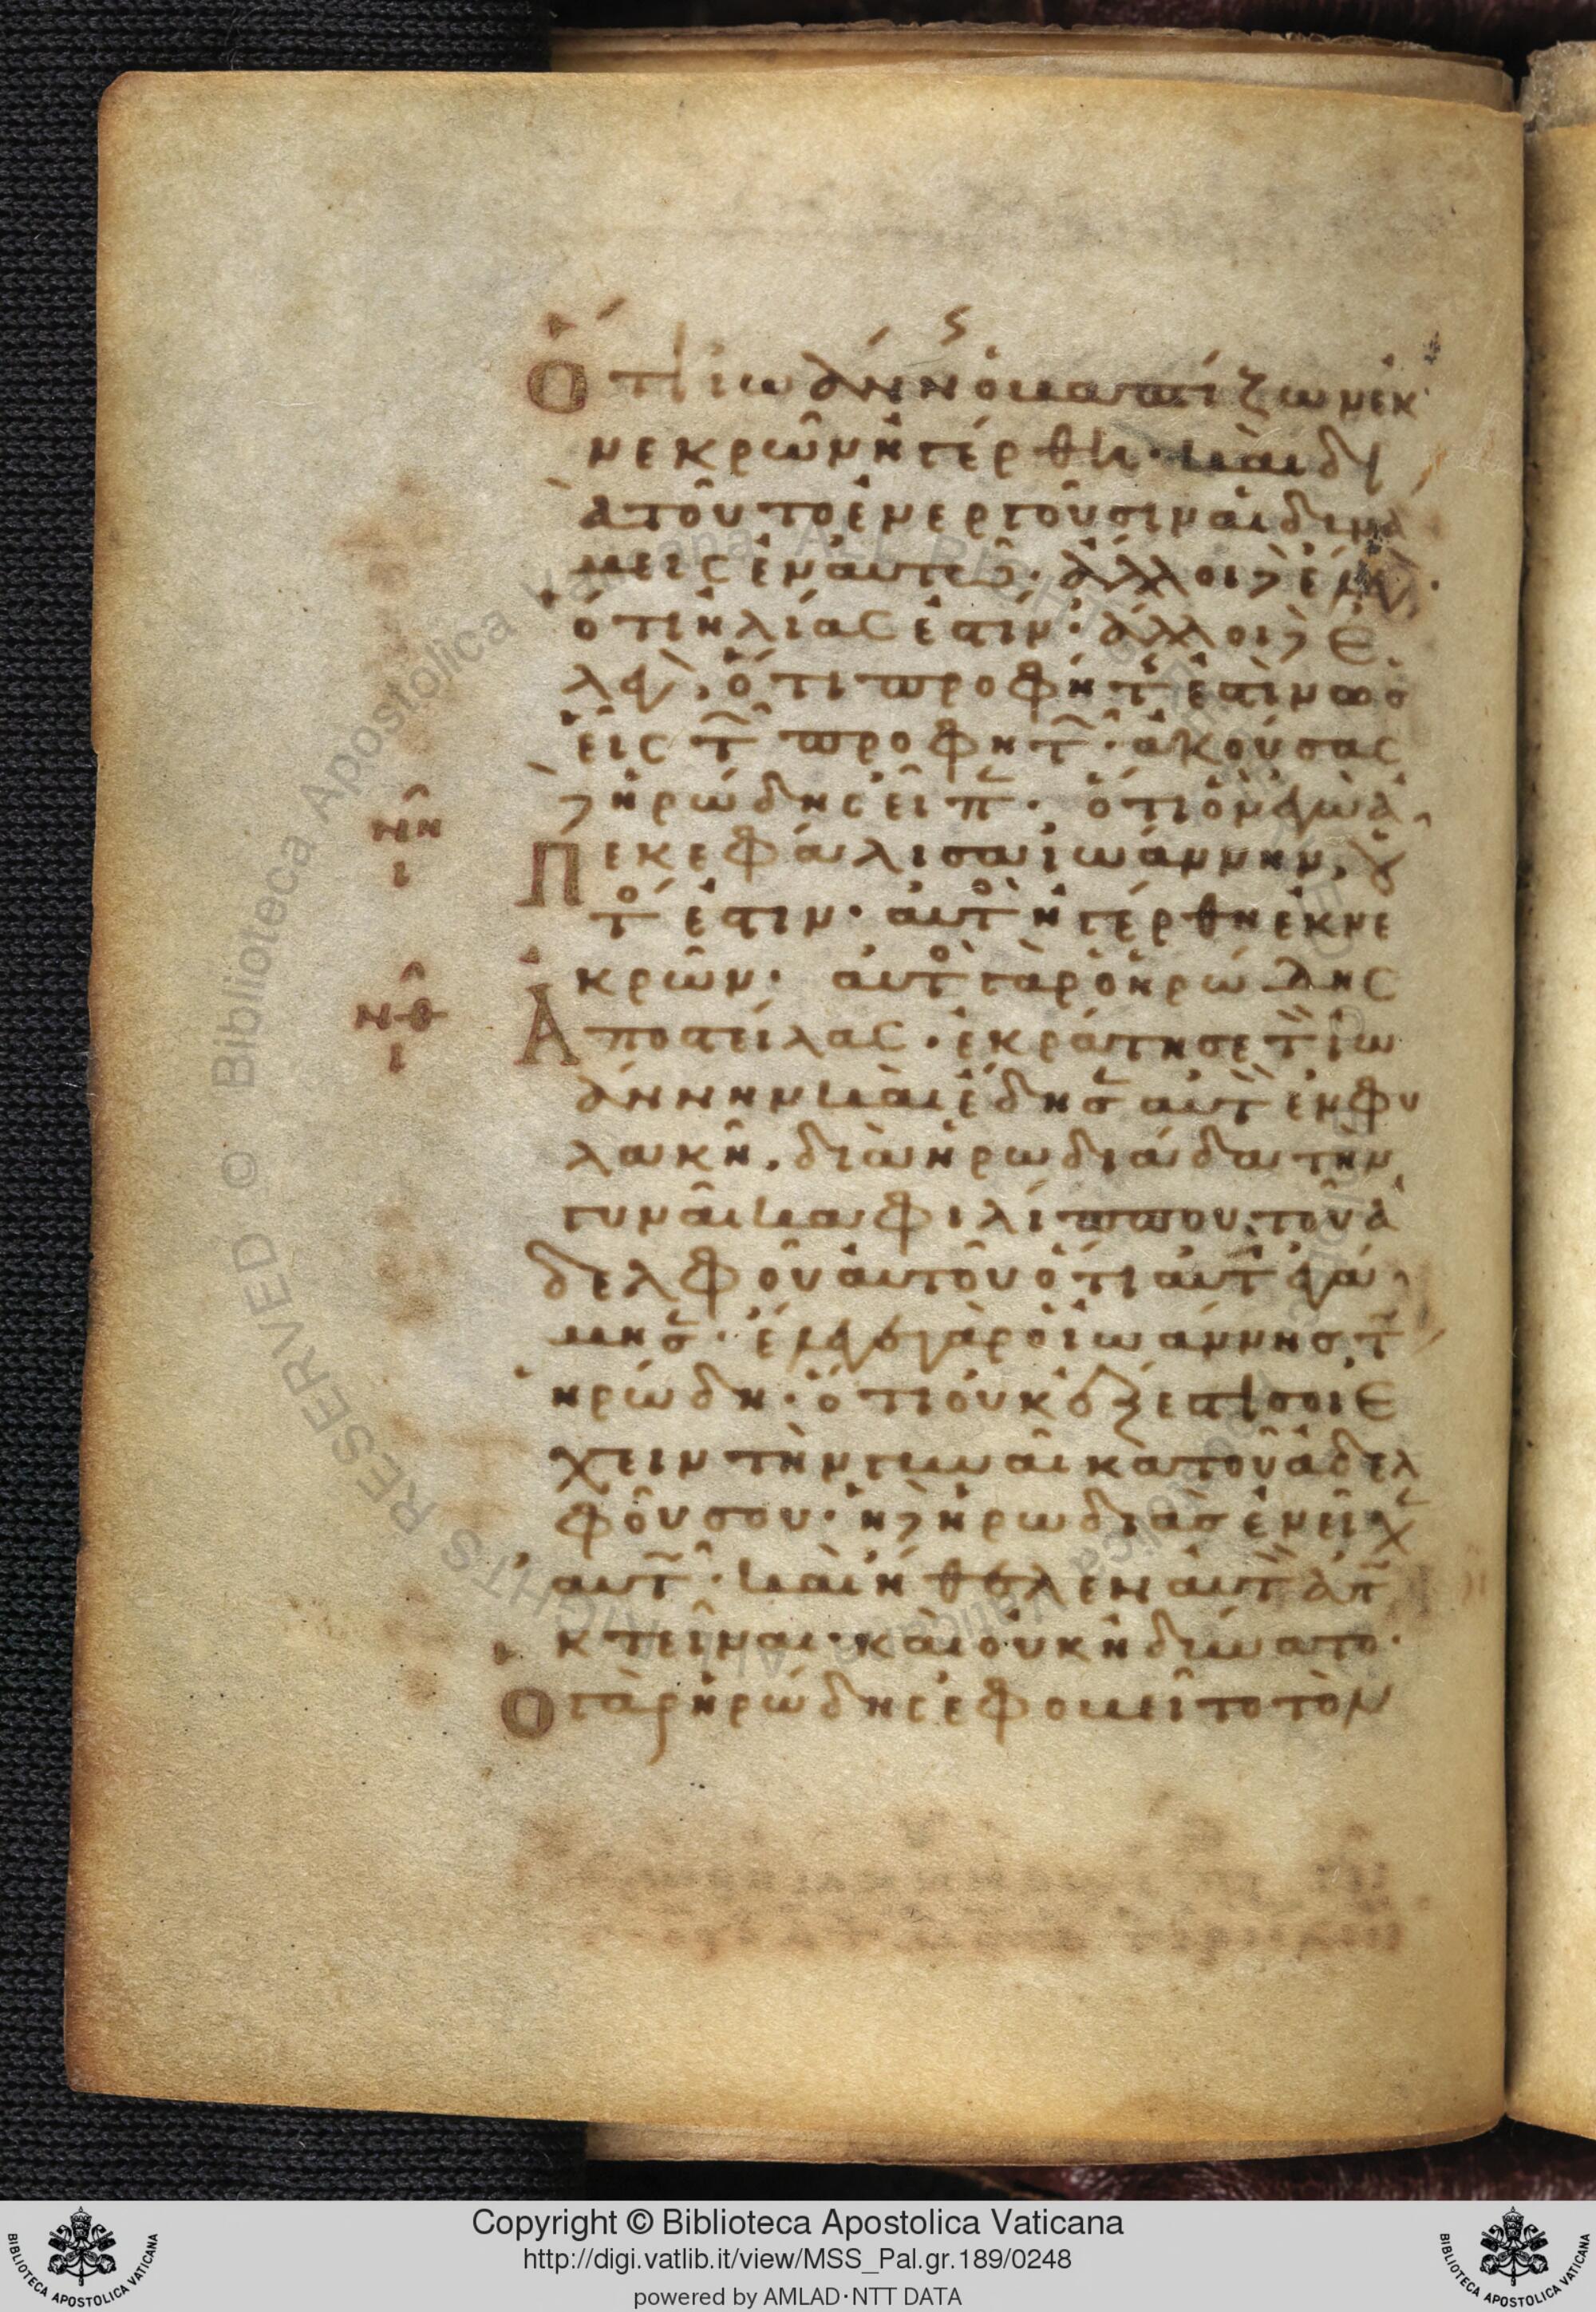 Ὅτι ἰωάννης ὁ βαπτίζων ἐκ
νεκρῶν ἠγέρθη· καὶ δι
ὰ τοῦτο ἐνεργοῦσιν αἱ δυνά
μεις ἐν αυτῶ· ἄλλοι δὲ ἔλεγον·
ὅτι ἠλίας ἐστιν· ἄλλοι δὲ ἔ
λεγον, ὅτι προφήτης ἐστὶν ὡσ
εἷς τῶν προφητῶν· ἀκούσας
δὲ ἡρώδης εἶπεν· ὅτι ὃν ἐγὼ ἀ
νη
ι
Πεκεφάλισα ἰωάννην, οὗ
τός ἐστιν· αὐτὸς ἠγέρθη ἐκ νε
κρῶν· αὐτὸς γὰρ ὁ ἡρώδης
νθ
ι
Ἀποστείλας· ἐκράτησε τὸν ἰω
άννην καὶ ἔδησεν αὐτὸν ἐν φυ
λακῆ, διὰ ἡρωδιάδα τὴν
γυναῖκα φιλίππου, τοῦ ἀ
δελφοῦ αὐτοῦ ὅτι αὐτὴν ἐγά
μησεν· ἔλεγεν γὰρ ὁ ἰωάννησ τῶ
ἡρώδη· ὅτι οὐκ ἔξεστι σοι ἔ
χειν τὴν γυναῖκα τοῦ ἀδελ
φοῦ σου· ἡ δὲ ἡρωδιὰσ ἐνεῖχεν
αυτῶ· καὶ ἤθελεν αὐτὸν ἀπο
κτεῖναι· καὶ οὐκ ἠδύνατο·
Ὁ γὰρ ἡρώδης ἐφοβεῖτο τὸν
Copyright © Biblioteca Apostolica Vaticana
http://digi.vatlib.it/view/MSS_Pal.gr.189/0248
powered by AMLAD·NTT DATA
BIBLIOTECA APOSTOLICA VATICANA
BIBLIOTECA APOSTOLICA VATICANA